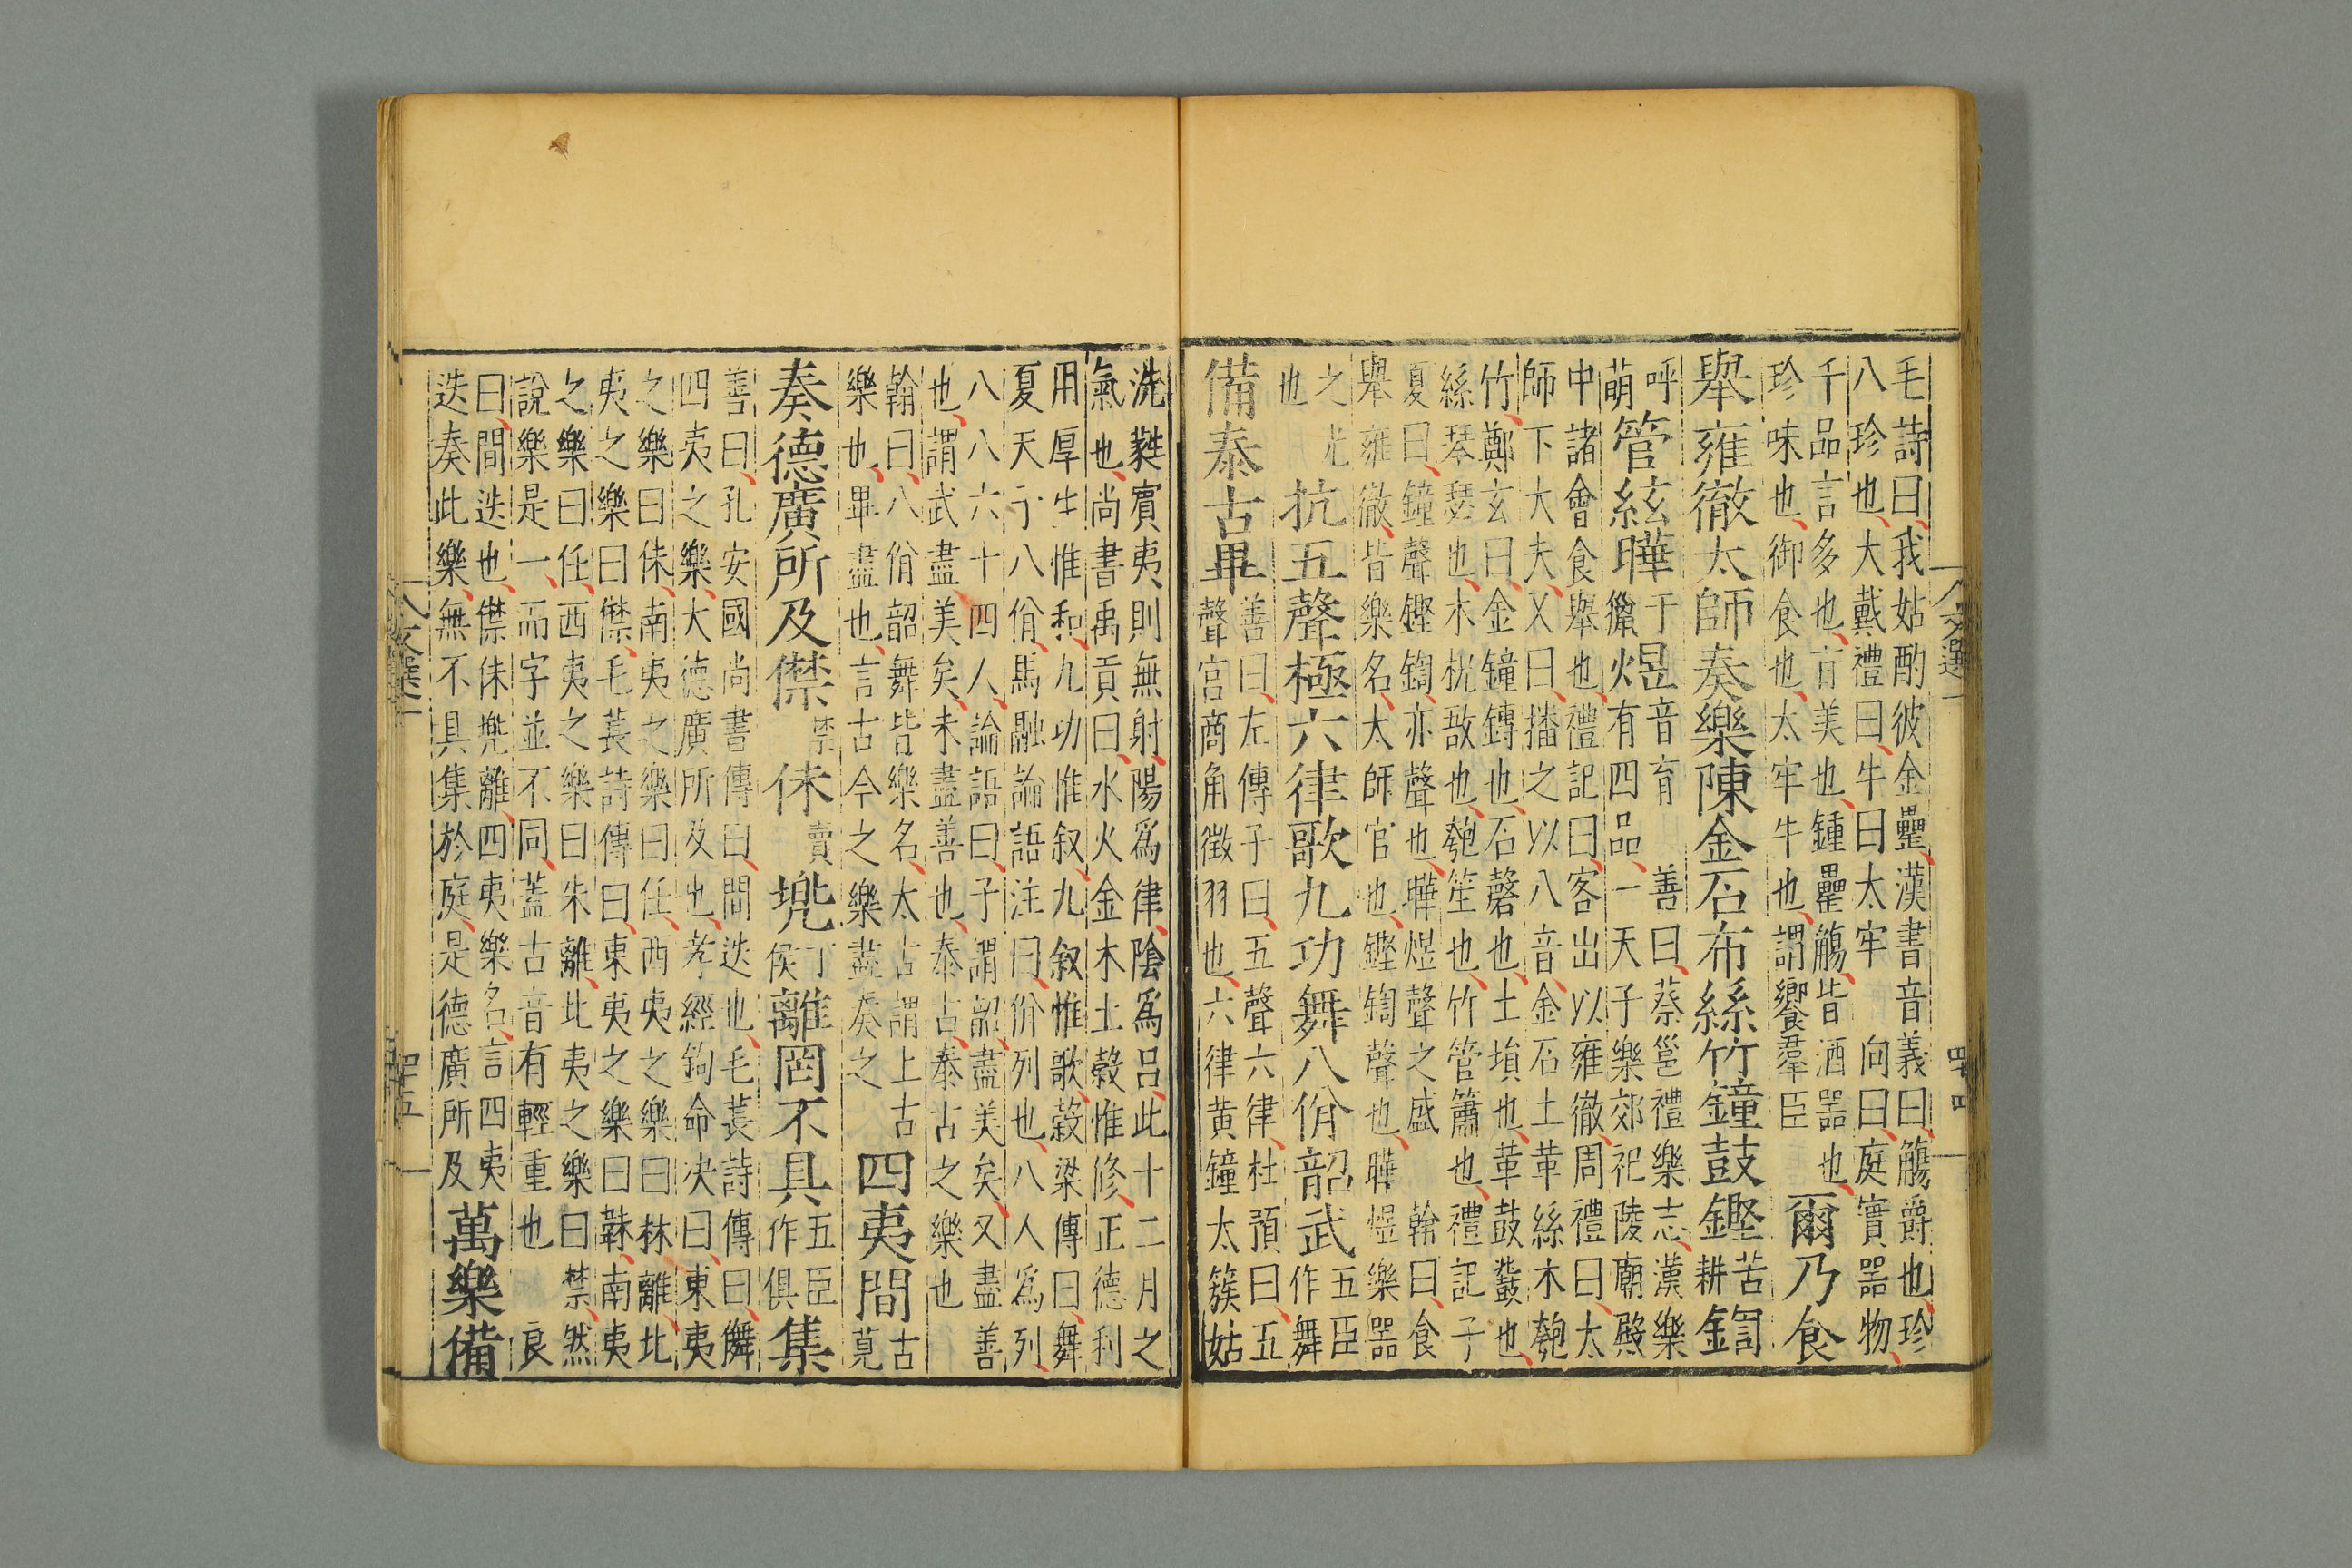 毛詩曰我姑酌彼金罍漢書音義曰觴爵也珍
八珍也大戴禮曰牛曰太牢向曰庭實器物
千品言多也旨美也鍾罍觴皆酒器也
珍味也御食也太牢牛也謂饗羣臣
爾乃食
舉雍徹太師奏樂陳金石布絲竹鐘鼓鏗苦耕鍧
呼萌管絃曄于獵煜音育有四品一天子樂郊祀陵廟殿
善曰蔡邕禮樂志漢樂
中諸會食舉也禮記曰客出以雍徹周禮曰太
師下大夫又曰播之以八音金石土革絲木匏
竹鄭玄曰金鐘鎛也石磬也土塤也革鼓鼗也
絲琴瑟也木柷敔也匏笙也竹管簫也禮記子
夏曰鐘聲鏗鍧亦聲也曄煜聲之盛翰曰食
舉雍徹皆樂名太師官也鏗鍧聲也曄煜樂器
之尤
也
抗五聲極六律歌九功舞八佾韶武五臣作舞
備泰古畢
善曰左傳子曰五聲六律杜預曰五
聲宮商角徵羽也六律黃鐘太簇姑
洗蕤賓夷則無射陽爲律陰爲呂此十二月之
氣也尚書禹貢曰水火金木土穀惟修正德利
用厚生惟和九功惟叙九叙惟歌穀梁傳曰舞
夏天子八佾馬融論語注曰佾列也八人爲列
八八六十四人論語曰子謂韶盡美矣又盡善
也謂武盡美矣未盡善也泰古泰古之樂也
翰曰八佾韶舞皆樂名太古謂上古
樂也畢盡也言古今之樂盡奏之
四夷間古莧
奏德廣所及僸禁佅賣兠丁侯離罔不具五臣作俱集
善曰孔安國尚書傳曰間迭也毛萇詩傳曰舞
四夷之樂大德廣所及也孝經鉤命决曰東夷
之樂曰佅南夷之樂曰任西夷之樂曰林離北
夷之樂曰僸毛萇詩傳曰東夷之樂曰韎南夷
之樂曰任西夷之樂曰朱離北夷之樂曰禁然
說樂是一而字並不同蓋古音有輕重也良
曰間迭也僸佅兠離四夷樂名言四夷
迭奏此樂無不具集於庭是德廣所及
萬樂備
文選一
四十四
文選一
四十五